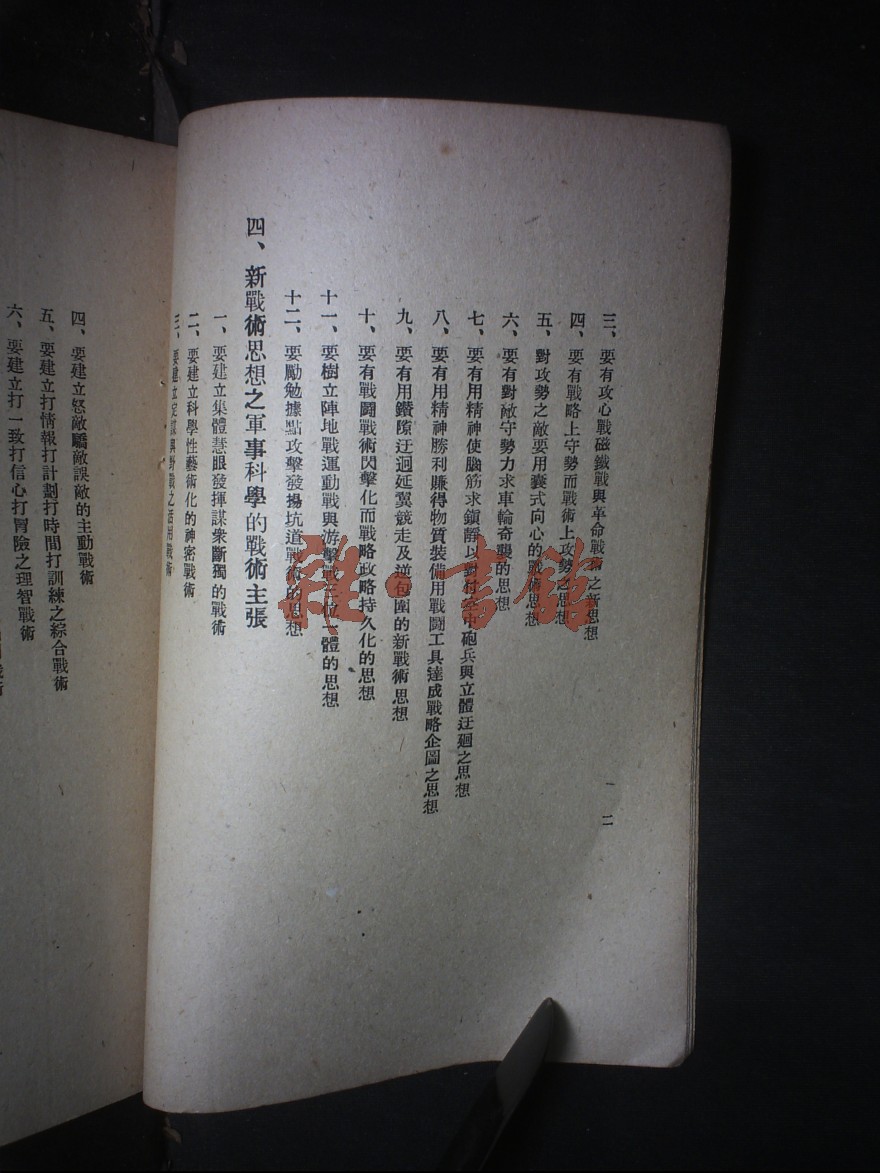 三、要有攻心戰磁鐵戰與革命戰術之新思想
四、要有戰略上守勢而戰術上攻勢之思想
五、對攻勢之敵要用囊式向心的戰術思想
六、要有對敵守勢力求車輪奇襲的思想
七、要有用精神使腦筋求鎮靜以對付空中砲兵與立體迂廻之思想
八、要有用精神勝利賺得物質裝備用戰鬪工具達成戰略企圖之思想
九、要有用鑽隙迂迴延翼競走及逆包圍的新戰術思想
十、要有戰鬪戰術閃擊化而戰略政略持久化的思想
十一、要樹立陣地戰運動戰與游擊戰三位一體的思想
十二、要勵勉據點攻擊發揚坑道戰術的思想
四、新戰術思想之軍事科學的戰術主張
一、要建立集體慧眼發揮謀衆斷獨的戰術
二、要建立科學性藝術化的神密戰術
三、要建立定謀與對戰之活用戰術
一二
四、要建立怒敵驕敵誤敵的主動戰術
五、要建立打情報打計劃打時間打訓練之綜合戰術
六、要建立打一致打信心打冒險之理智戰術
雜·書館